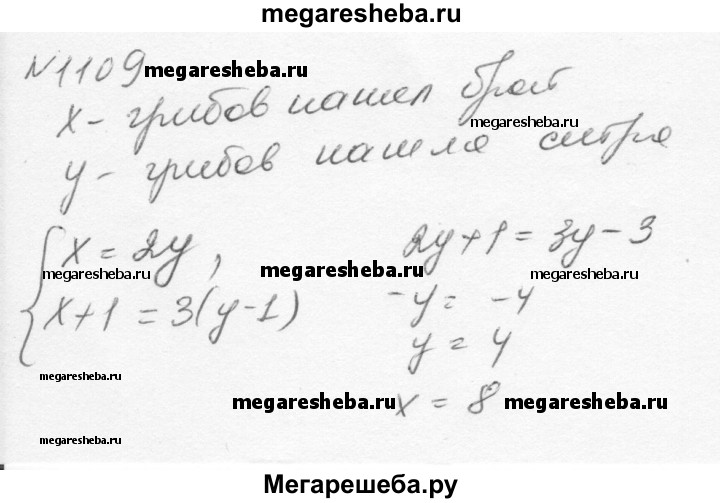 megaresheba.ru
№1109 megaresheba.ru
x - грибов нашел брат
megaresheba.ru
y - грибов нашла систра
{ x = 2y,
x + 1 = 3(y - 1)
2y + 1 = 3y - 3
megaresheba.ru megaresheba.ru
-y = -4
y = 4
megaresheba.ru
megaresheba.ru x = 8 megaresheba.ru
megaresheba.ru
Мегарешеба.ру